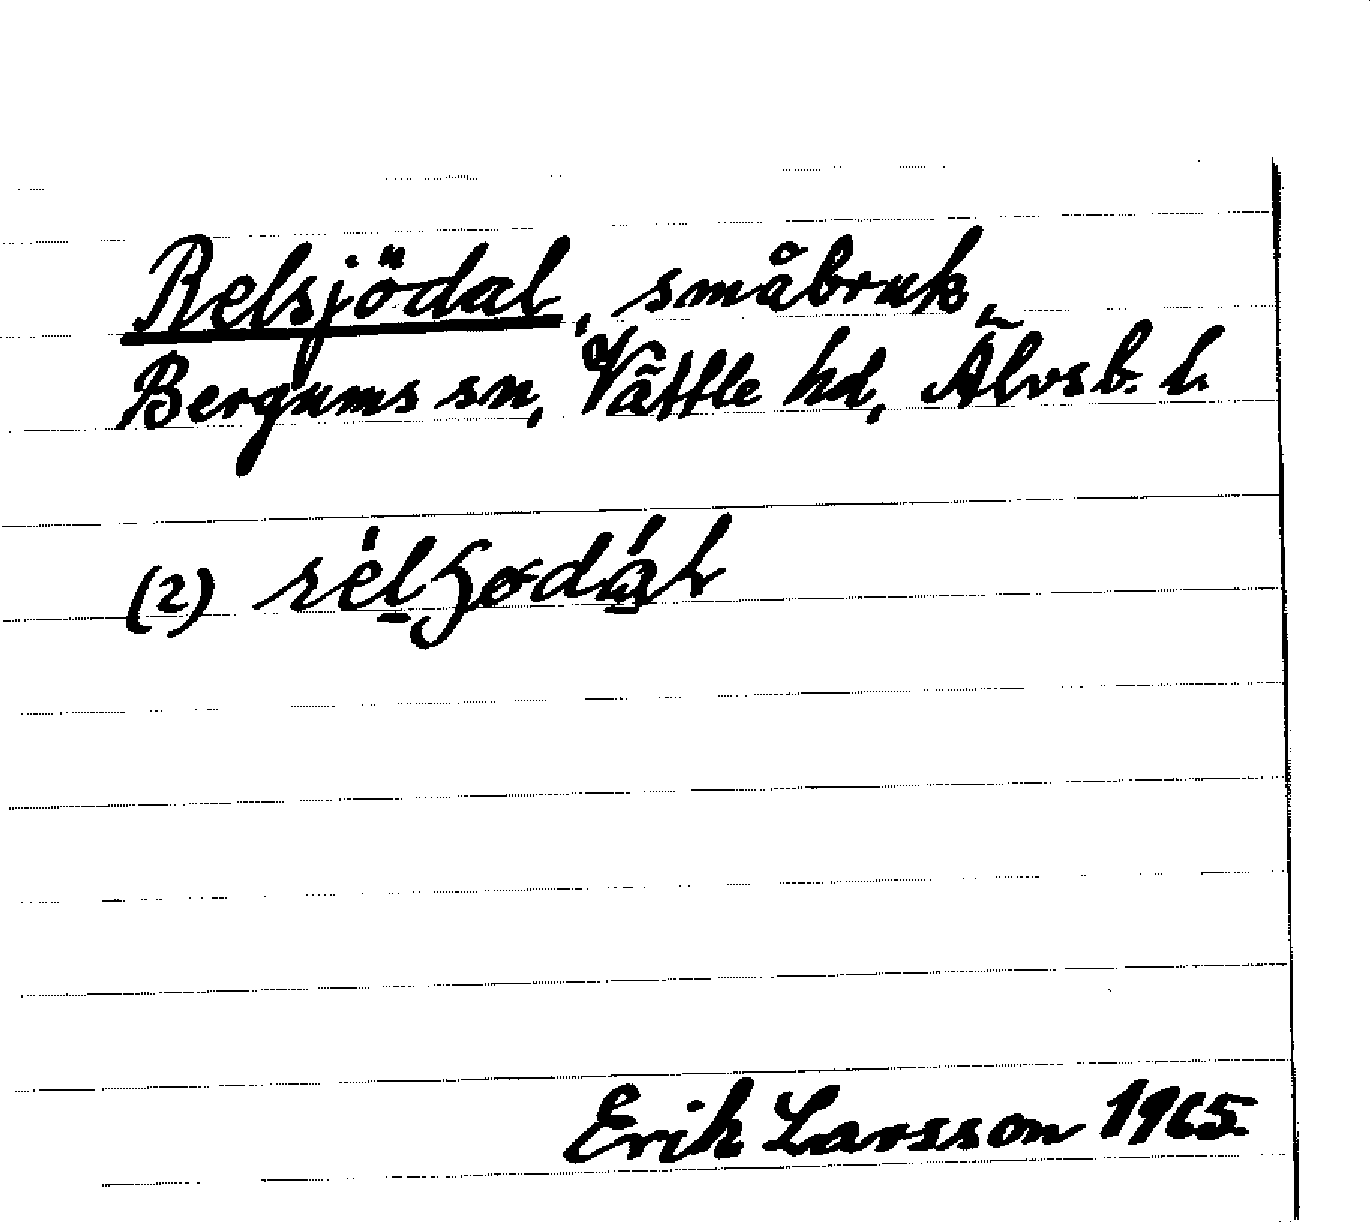 Relsjödal, småbruk,
Bergums sn, Vättle hd, Älvsb. l.
(2)
Erik Larsson 1965